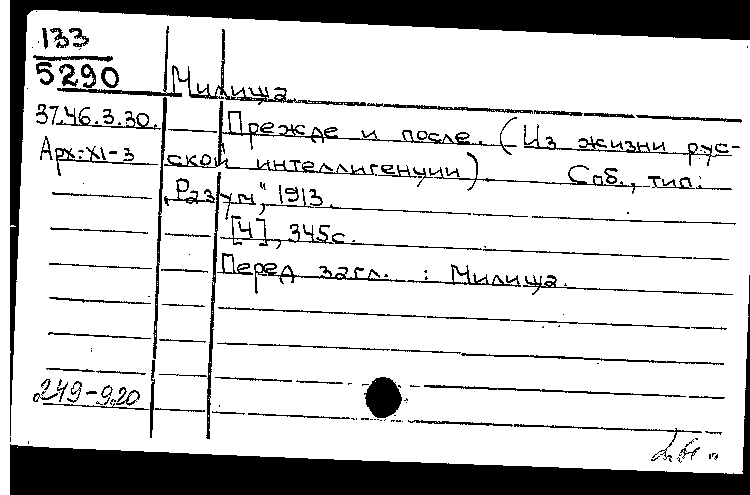 133
5290
Милица.
37.46.3.30.
Прежде и после. (Из жизни рус-
Арх: XI-3
ской интеллигенции). Спб., тип.
„Разум", 1913.
[4], 345с.
Перед загл. : Милица.
249-920